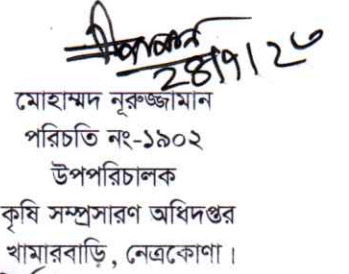 মোহাম্মদ নূরুজ্জামান
পরিচতি নং-১৯০২
উপপরিচালক
কৃষি সম্প্রসারণ অধিদপ্তর
খামারবাড়ি, নেত্রকোণা।